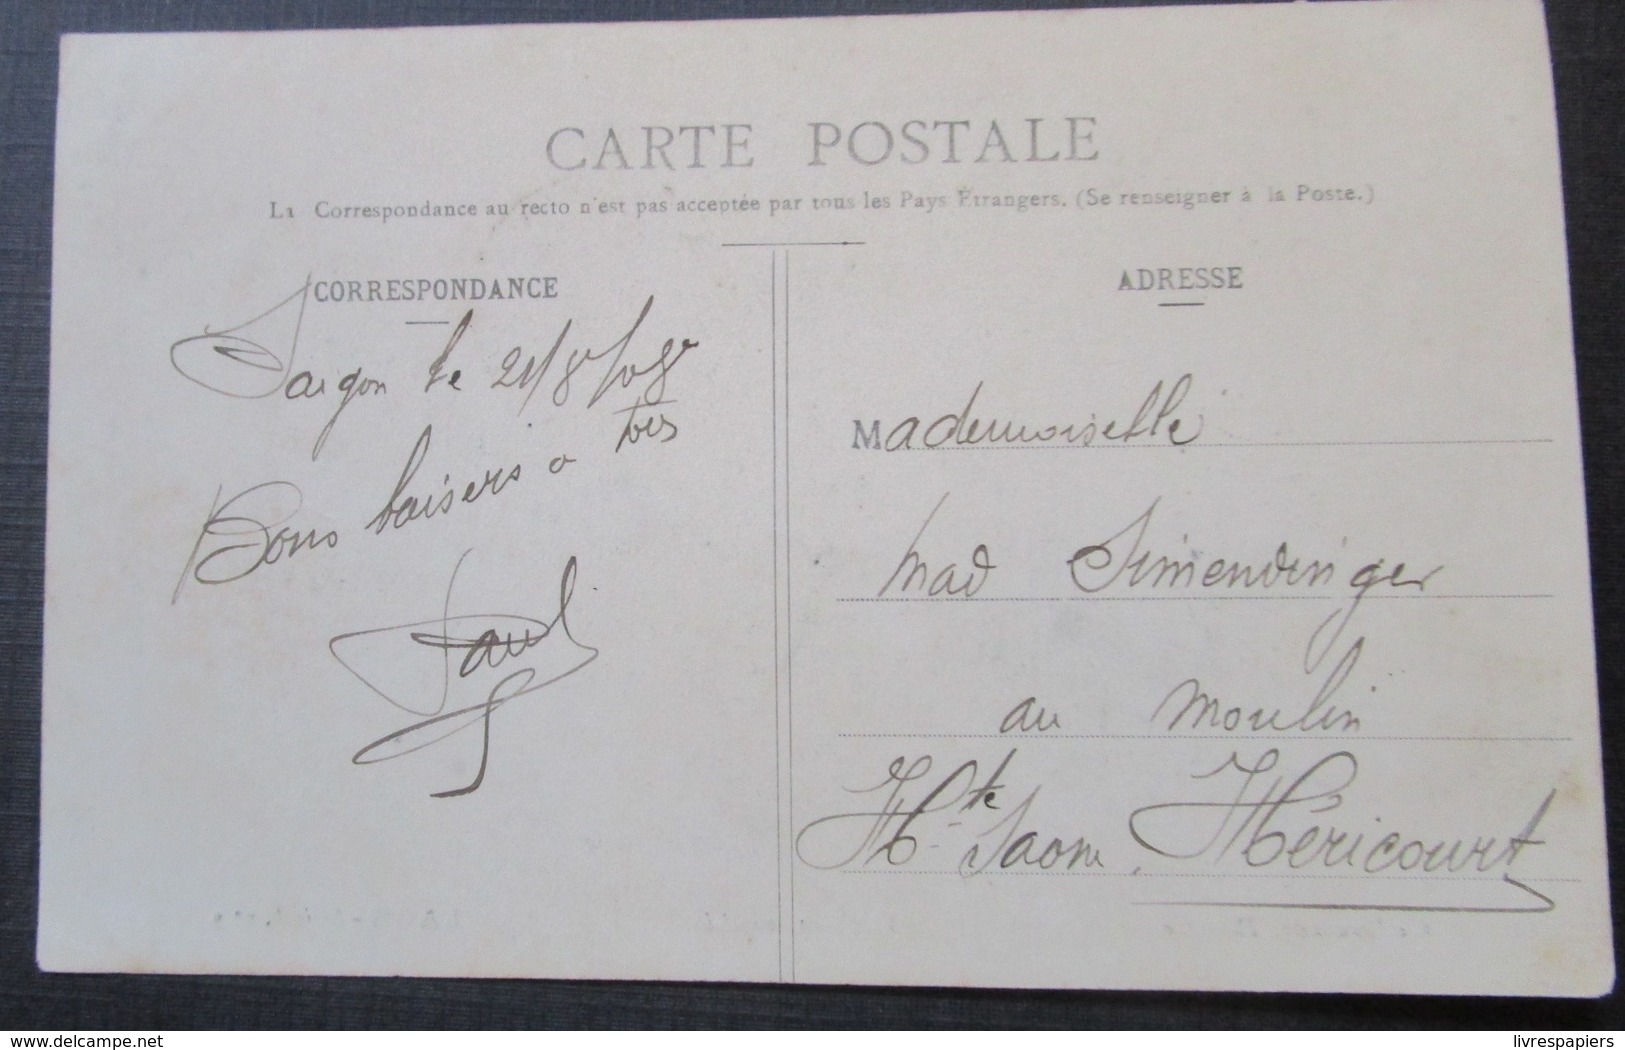 CARTE POSTALE
La Correspondance au recto n'est pas acceptée par tous les Pays Étrangers. (Se renseigner à la Poste.)
CORRESPONDANCE
Saigon le 21/8/08
Bons baisers a tous
Paul
ADRESSE
Mademoiselle
Mad Simendinger
au moulin
Hte Saone Héricourt
delcampe.net
livrespapiers